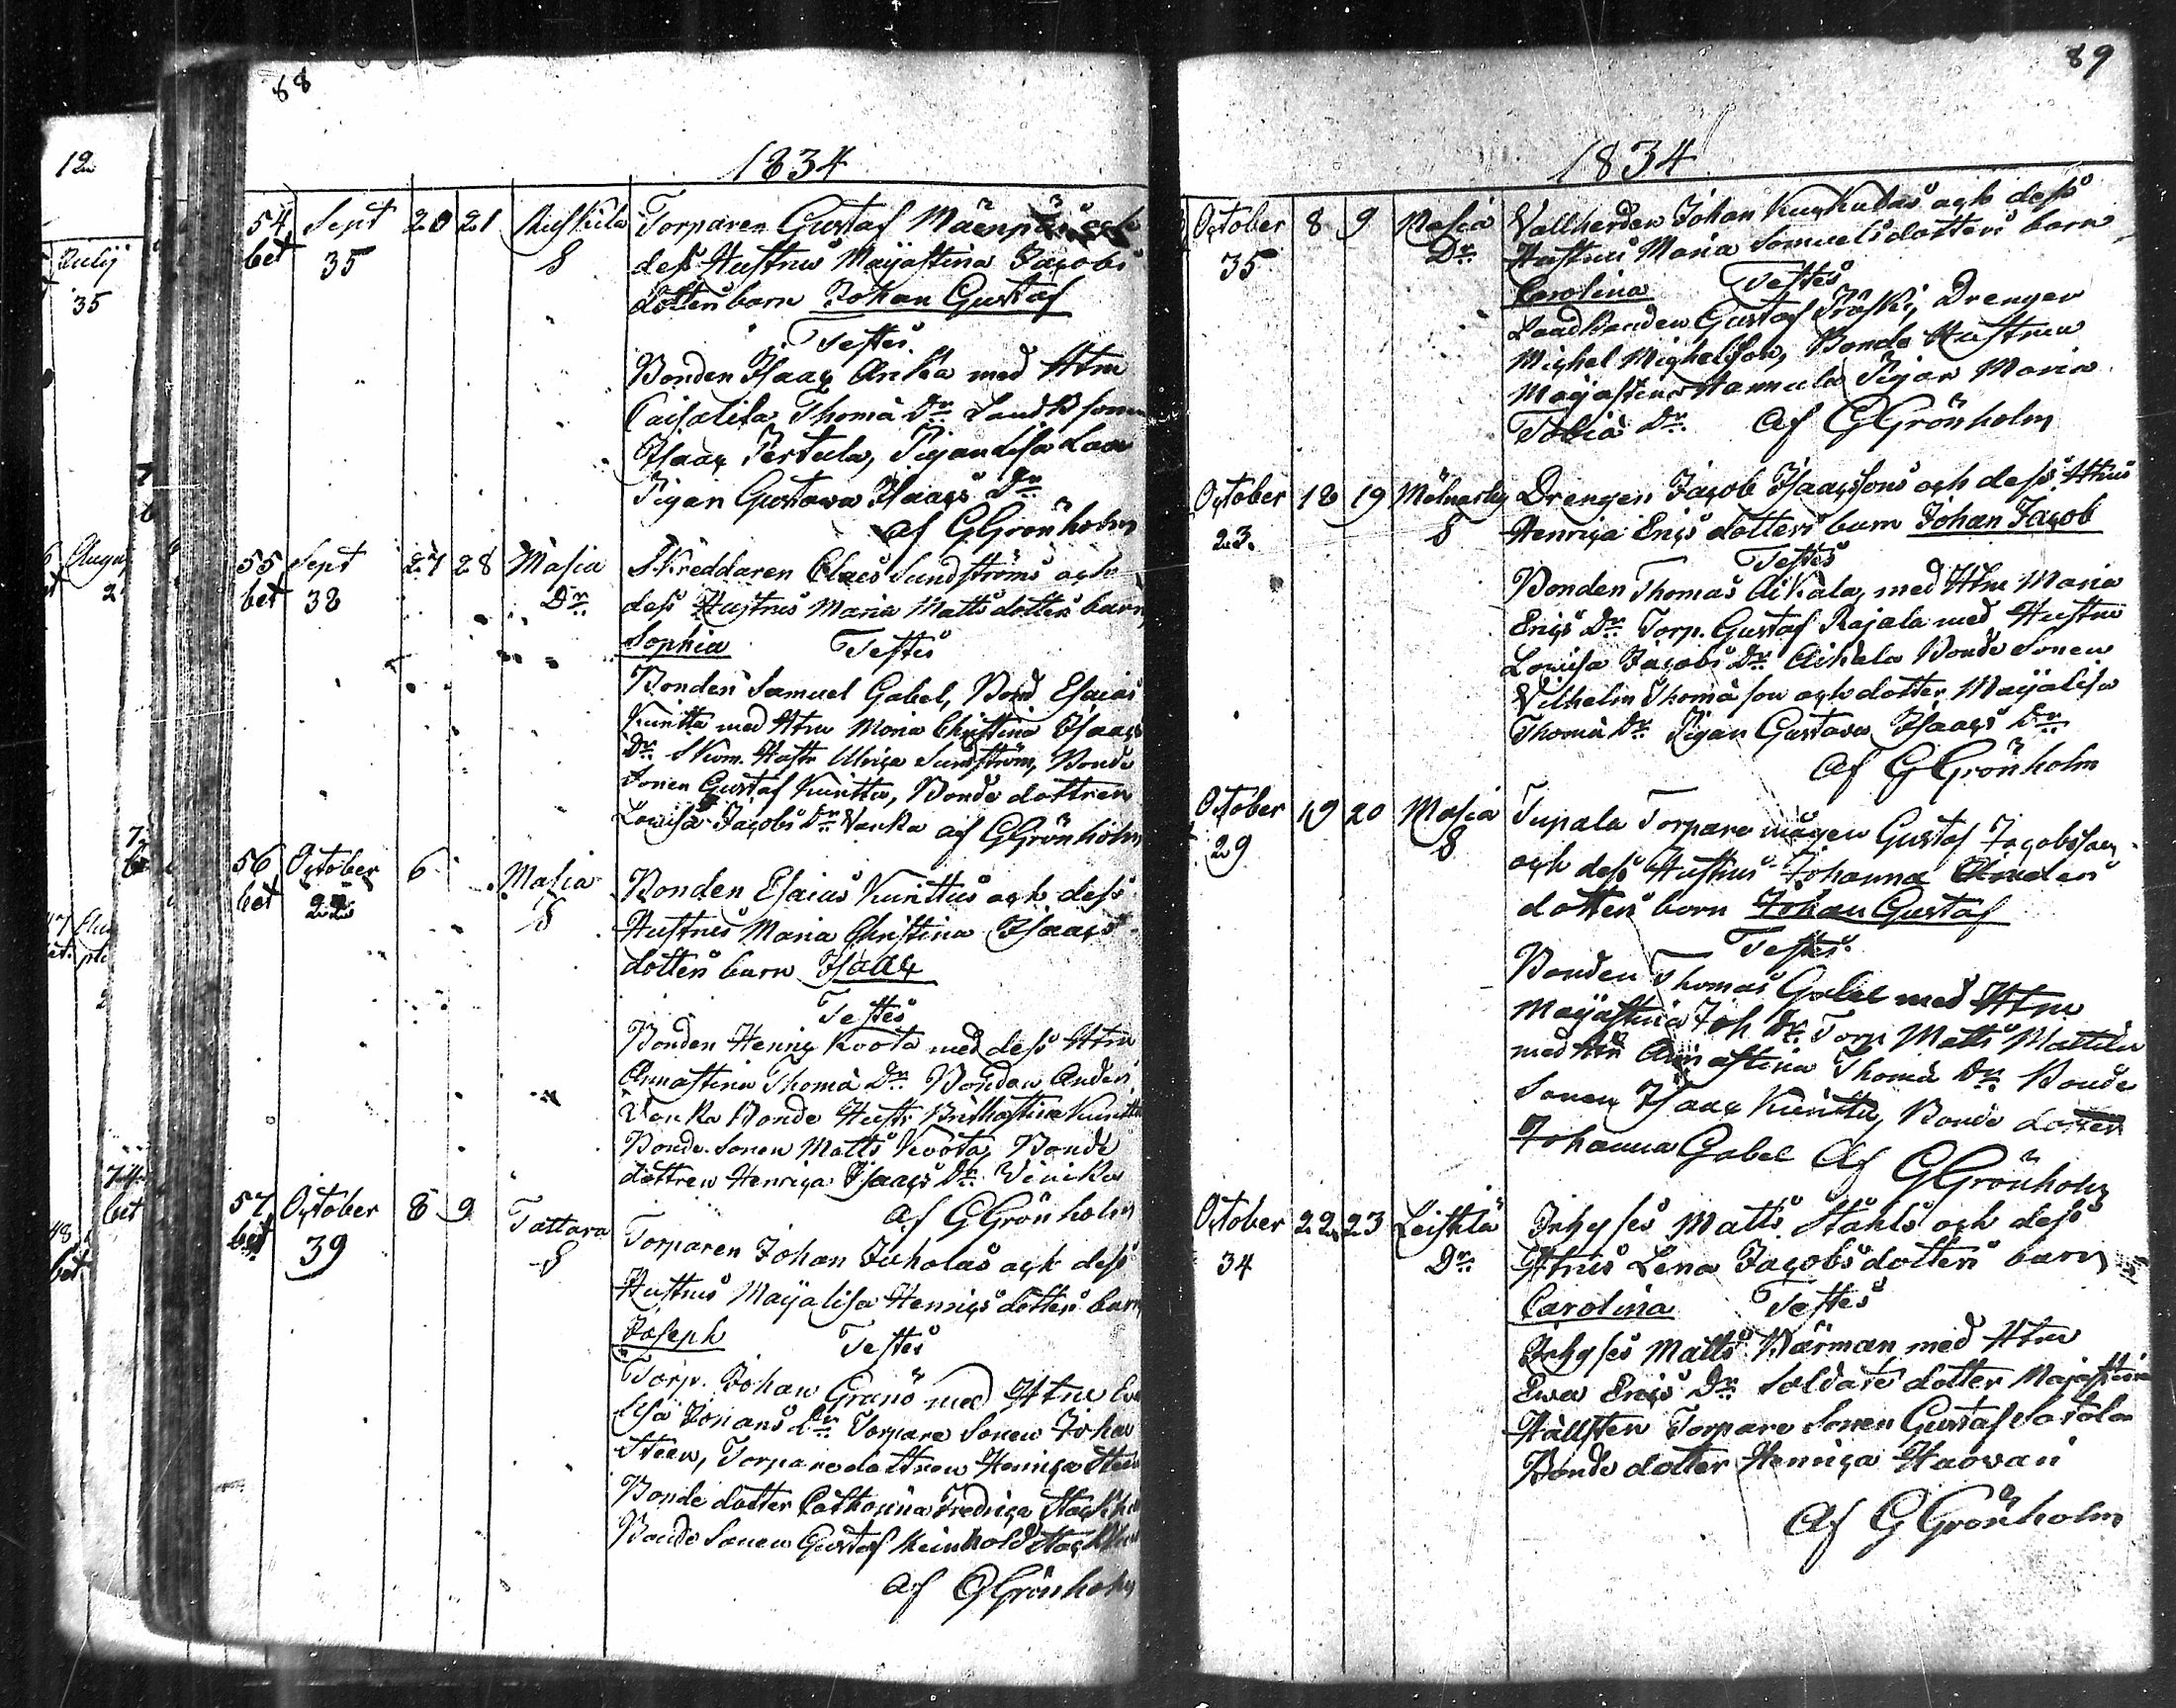 88
1834
54 Sept 20 21 Torparen Gustaf Mäenpäs och
bet 35 S dess Hustrus Maijastina Jacobs
dotters barn Johan Gustaf
Testes
Bonden Isaac Anka med Hru
Caisalisa Thomä Dr Landb sonen
Isaac Pertula, Pigan Lisa
Pigan Gustava Isaacs Dr
af GGrönholm
55 Sept 27 28 Masia Skreddaren Claes Sundströms och
bet 32 Dr dess Hustrus Maria Matts dotters barn
Sophia Testes
Bonden Samuel Gabel, Bond Esaias
Kuritta med Hru Maria Christina Isaacs
Dr Skom. Hustr Ulrica Sundström, Bonde
Sonen Gustaf Kuritta, Bonde dottren
Lovisa Jacobs Dr Vanka af GGrönholm
56 October 6 Masia Bonden Esaias Kurittus och dess
bet 22 S Hustrus Maria Christina Isaacs
dotters barn Isaac
Testes
Bonden Henric Koota med dess Hru
Annastina Thomä Dr Bonden Anders
Vanka Bonde Hustr Brithastina Kuritta
Bonde Sonen Matts Koota, Bonde
dottren Henrica Isaacs Dr
af GGrönholm
57 October 8 9 Tattara Torparen Johan Juholas och dess
bet 39 S Hustrus Maijalisa Henrics dotters barn
Joseph Testes
Torp. Johan Granö med Hru
Lisa Johans Dr Torpare Sonen Johan
Steen, Torpare dottren Henrica Steen
Bonde dotter Catharina Fredrica
Bonde Sonen Gustaf Reinhold
af GGrönholm
89
1834
October 8 9 Masia Vallherden Johan Kuckulas och dess
35 Dr Hustrus Maria Samuelsdotters barn
Carolina Testes
Landbonden Gustaf Präski, Drengen
Michel Michelsson, Bonde Hustrun
Maijastina Hannula Pigan Maria
Tobiä Dr af GGrönholm
October 18 19 Mälnarby Drengen Jacob Isaacssons och dess Hrus
23. S Henrica Erics dotters barn Johan Jacob
Testes
Bonden Thomas Aikala, med Hru Maria
Erics Dr Torp. Gustaf Rajala med Hustru
Lovisa Jacobs Dr Aikala Bonde Sonen
Vilhelm Thomäson och dotter Maijalisa
Thomä Dr Pigan Gustava Isaacs Dr
af GGrönholm
October 19 20 Masia Tupala Torpare mågen Gustaf Jacobsson
29 S och dess Hustrus Johanna Anders
dotters barn Johan Gustaf
Testes
Bonden Thomas Gabel med Hru
Maijastina Joh Dr. Torp Matts Mattila
med Hru Annastina Thomä Dr Bonde
Sonen Isaac Kuritta, Bonde dotter
Johanna Gabel af GGrönholm
October 22 23 Leistilä Inhyses Matts Ståhls och dess
34 Dr Hrus Lena Jacobsdotters barn
Carolina Testes
Inhyses Matts Wärman med Hru
Ewa Erics Dr Soldats dotter Majastina
Hällsten Torpare Sonen Gustaf Satola
Bonde dotter Henrica Haovari
af GGrönholm